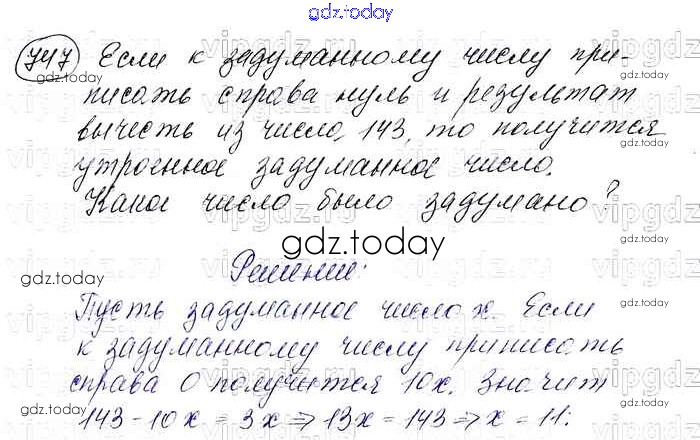 gdz.today
747 Если к задуманному числу при-
писать справа нуль и результат
вычесть из число, 143, то получится
утроенное задуманное число.
Какое число было задумано?
gdz.today
Решение:
Пусть задуманное число x. Если
к задуманному числу приписать
справа 0 получится 10x. Значит
143 - 10x = 3x ⇒ 13x = 143 ⇒ x = 11.